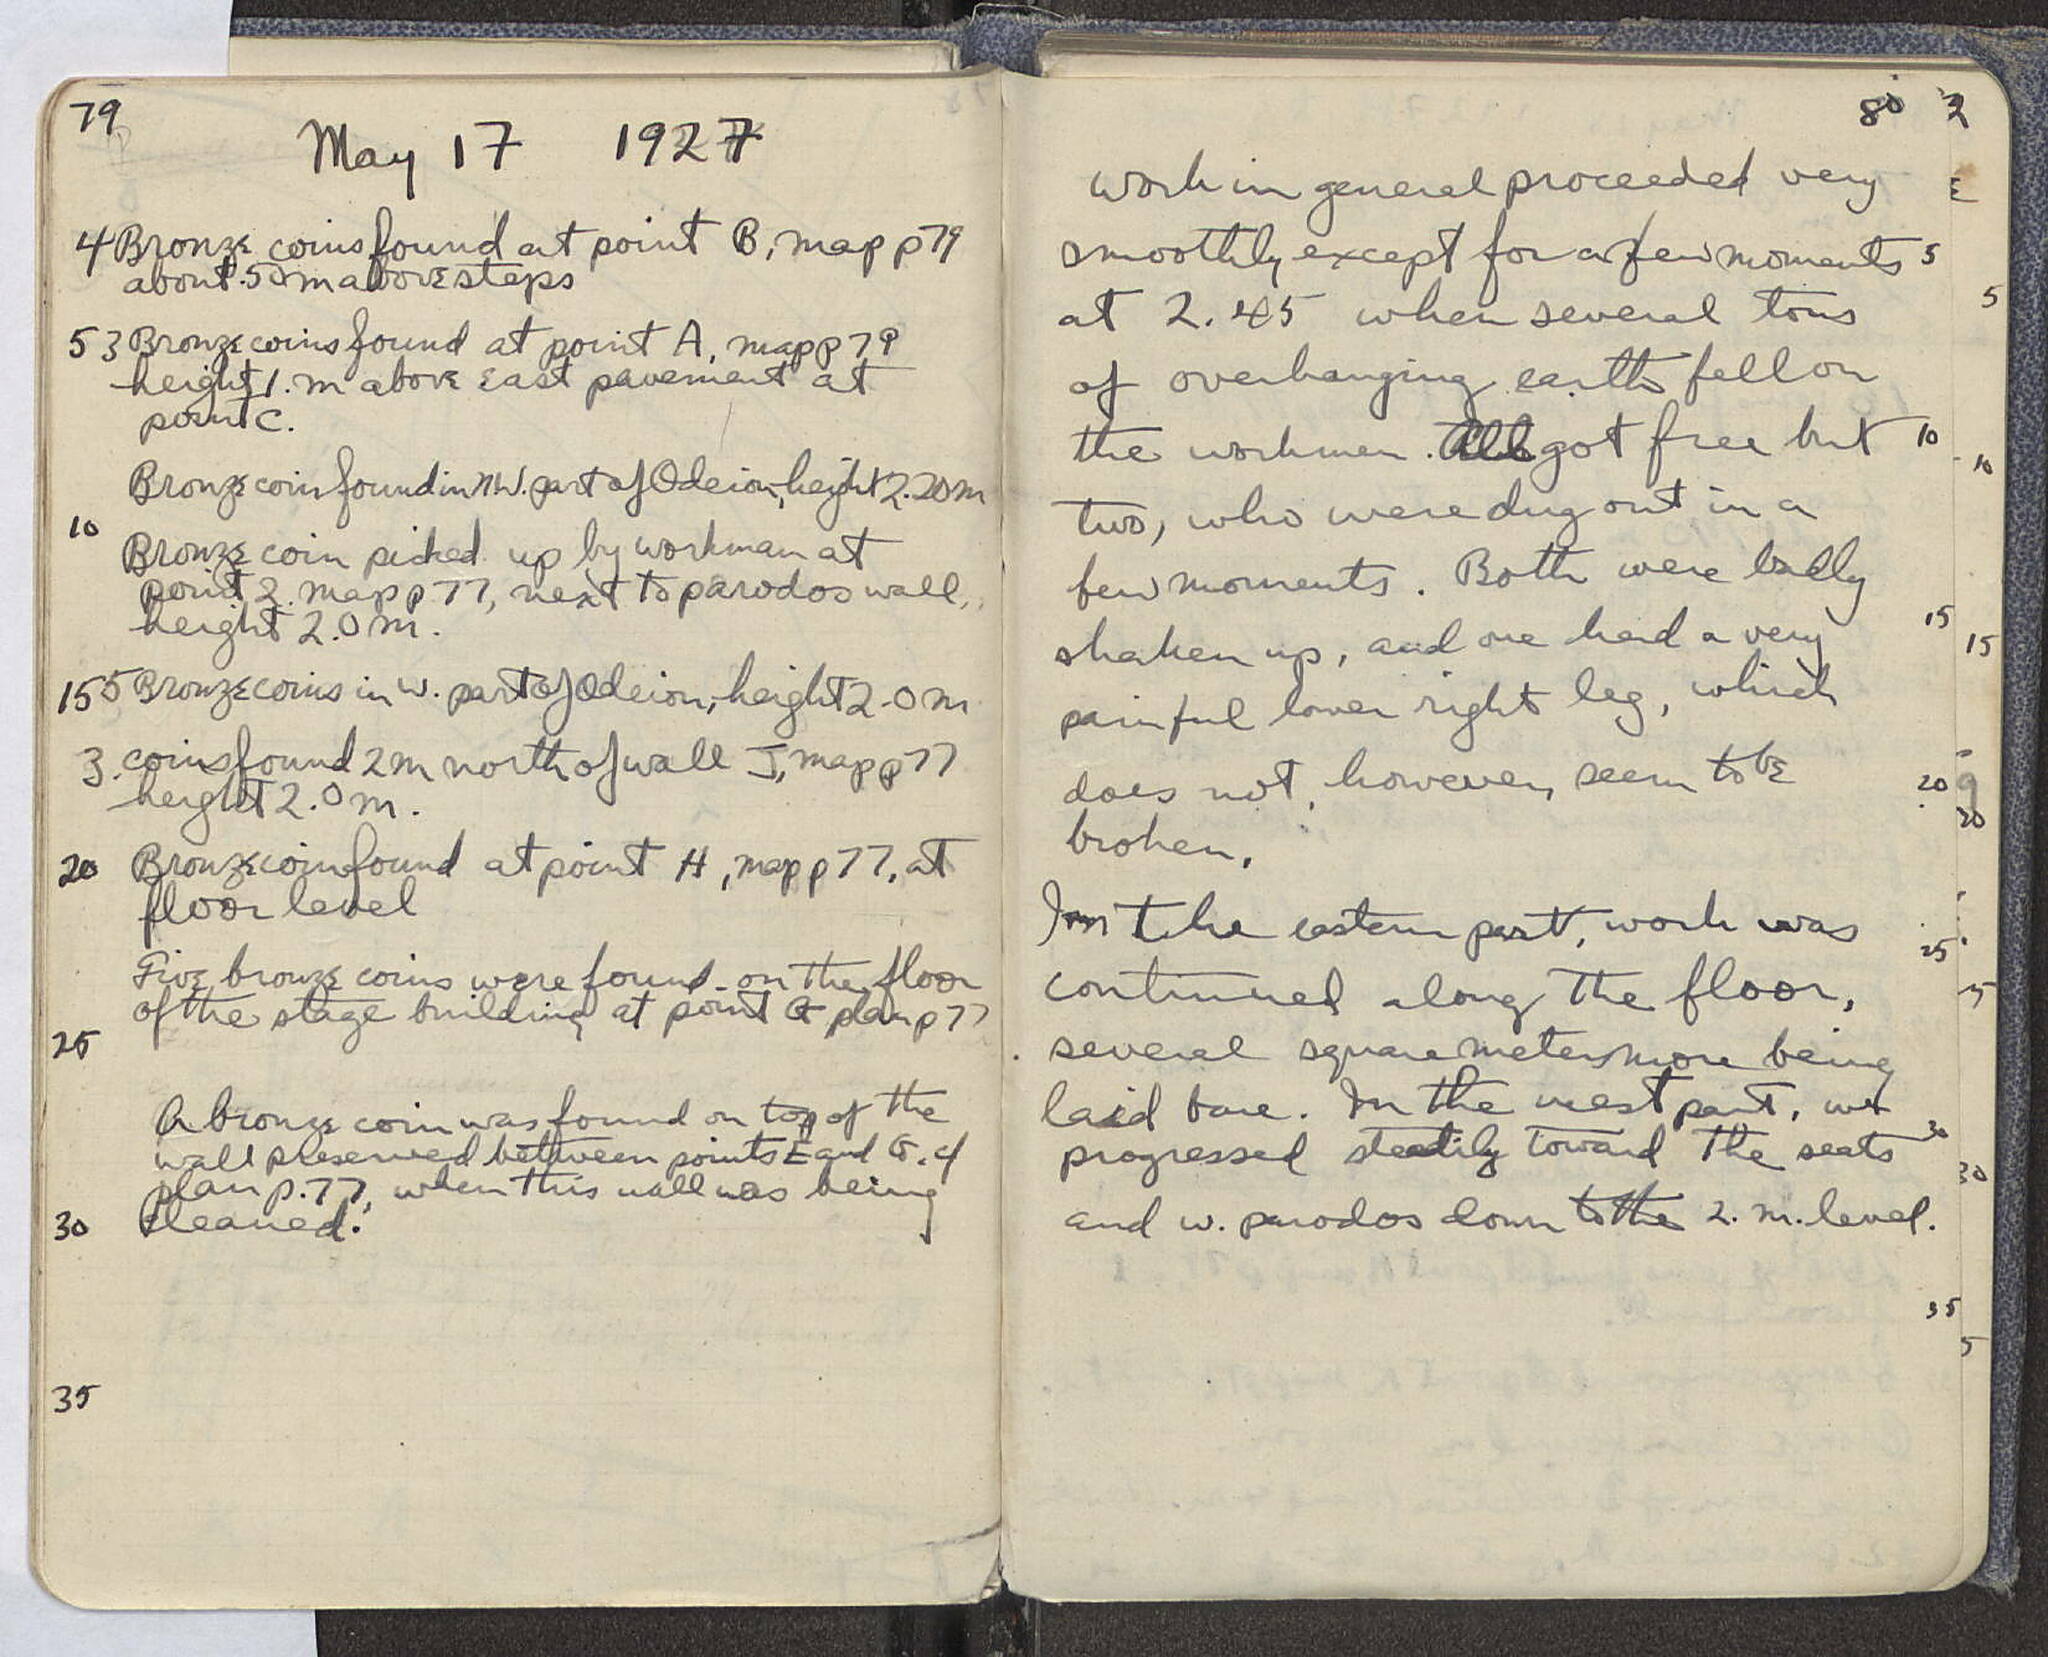 79
May 17 1927
4 Bronze coins found at point B, map p 79
about .50 m above steps
5 3 Bronze coins found at point A, map p 79
height 1. m above East pavement at
point C.
Bronze coin found in NW. part of Odeion, height 2.20 m
10
Bronze coin picked up by workman at
point 2. map p 77, next to parodos wall,
height 2.0 m.
15 5 Bronze coins in W. part of Odeion, height 2.0 m
3. coins found 2 m north of wall J, map p 77
height 2.0 m.
20 Bronze coin found at point H, map p 77, at
floor level
Five bronze coins were found on the floor
of the stage building at point G plan p 77
25
A bronze coin was found on top of the
wall preserved between points E and G. cf
plan p. 77, when this wall was being
30 cleaned.
35
80
work in general proceeded very
smoothly except for a few moments 5
at 2.45 when several tons
of overhanging earth fell on
the workmen. All got free but 10
two, who were dug out in a
few moments. Both were badly
shaken up, and one had a very 15
painful lower right leg, which
does not, however, seem to be 20
broken.
In the eastern part, work was 25
continued along the floor,
several square meters more being
laid bare. In the west part, we
progressed steadily toward the seats 30
and w. parodos down to the 2. m. level.
35
2
5
10
15
20
30
5